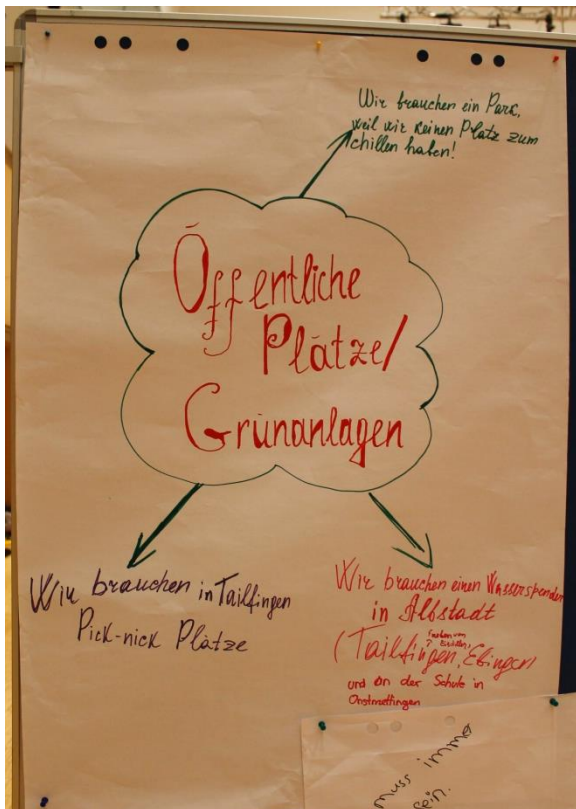 Wir brauchen ein Park,
weil wir keinen Platz zum
chillen haben!
Öffentliche
Plätze/
Grünanlagen
Wir brauchen in Tailfingen
Pick-nick Plätze
Wir brauchen einen Wasserspender
in Albstadt
(Tailfingen, Ebingen)
und an der Schule in
Onstmettingen
muss immer
sein.